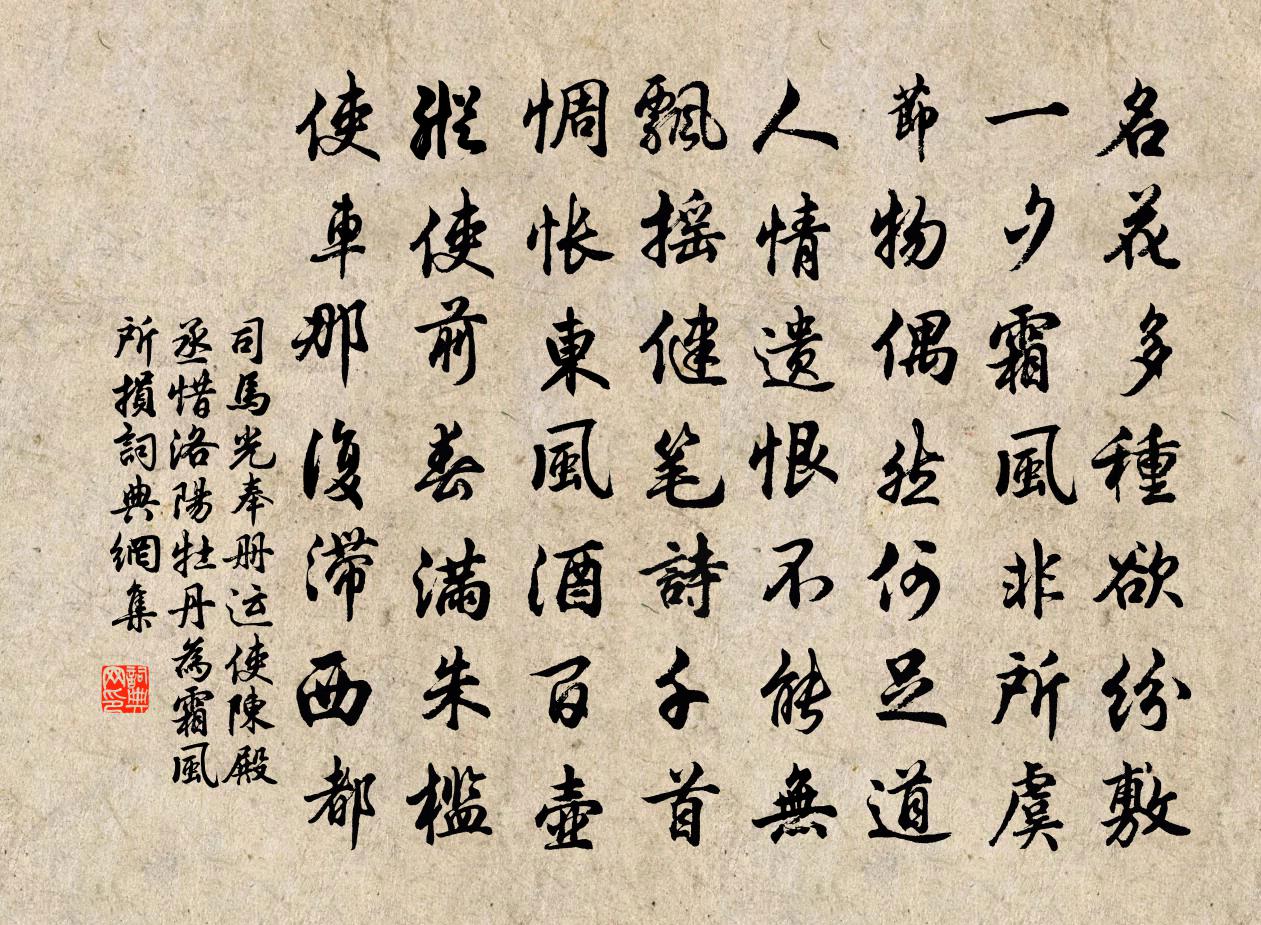 名花多種欲紛敷
一夕霜風非所虞
節物偶然何足道
人情遺恨不能無
飄摇健笔詩千首
惆怅東風酒百壺
縱使前春满朱檻
使車那復滞西都
司馬光奉册运使陳殿
丞惜洛陽牡丹為霜風
所損詞典網集
詞典网印